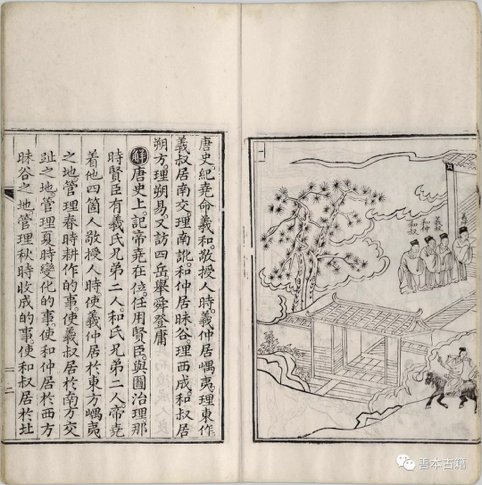 和叔
和仲
唐史紀堯命羲和敬授人時羲仲居嵎夷理東作
羲叔居南交理南訛和仲居昧谷理西成和叔居
朔方理朔易又訪四岳舉舜登庸
解唐史上記帝堯在位任用賢臣與圖治理那
時賢臣有羲氏兄弟二人和氏兄弟二人帝堯
着他四箇人敬授人時使羲仲居於東方嵎夷
之地管理春時耕作的事使羲叔居於南方交
趾之地管理夏時變化的事使和仲居於西方
昧谷之地管理秋時收成的事使和叔居於北
二
善本古籍